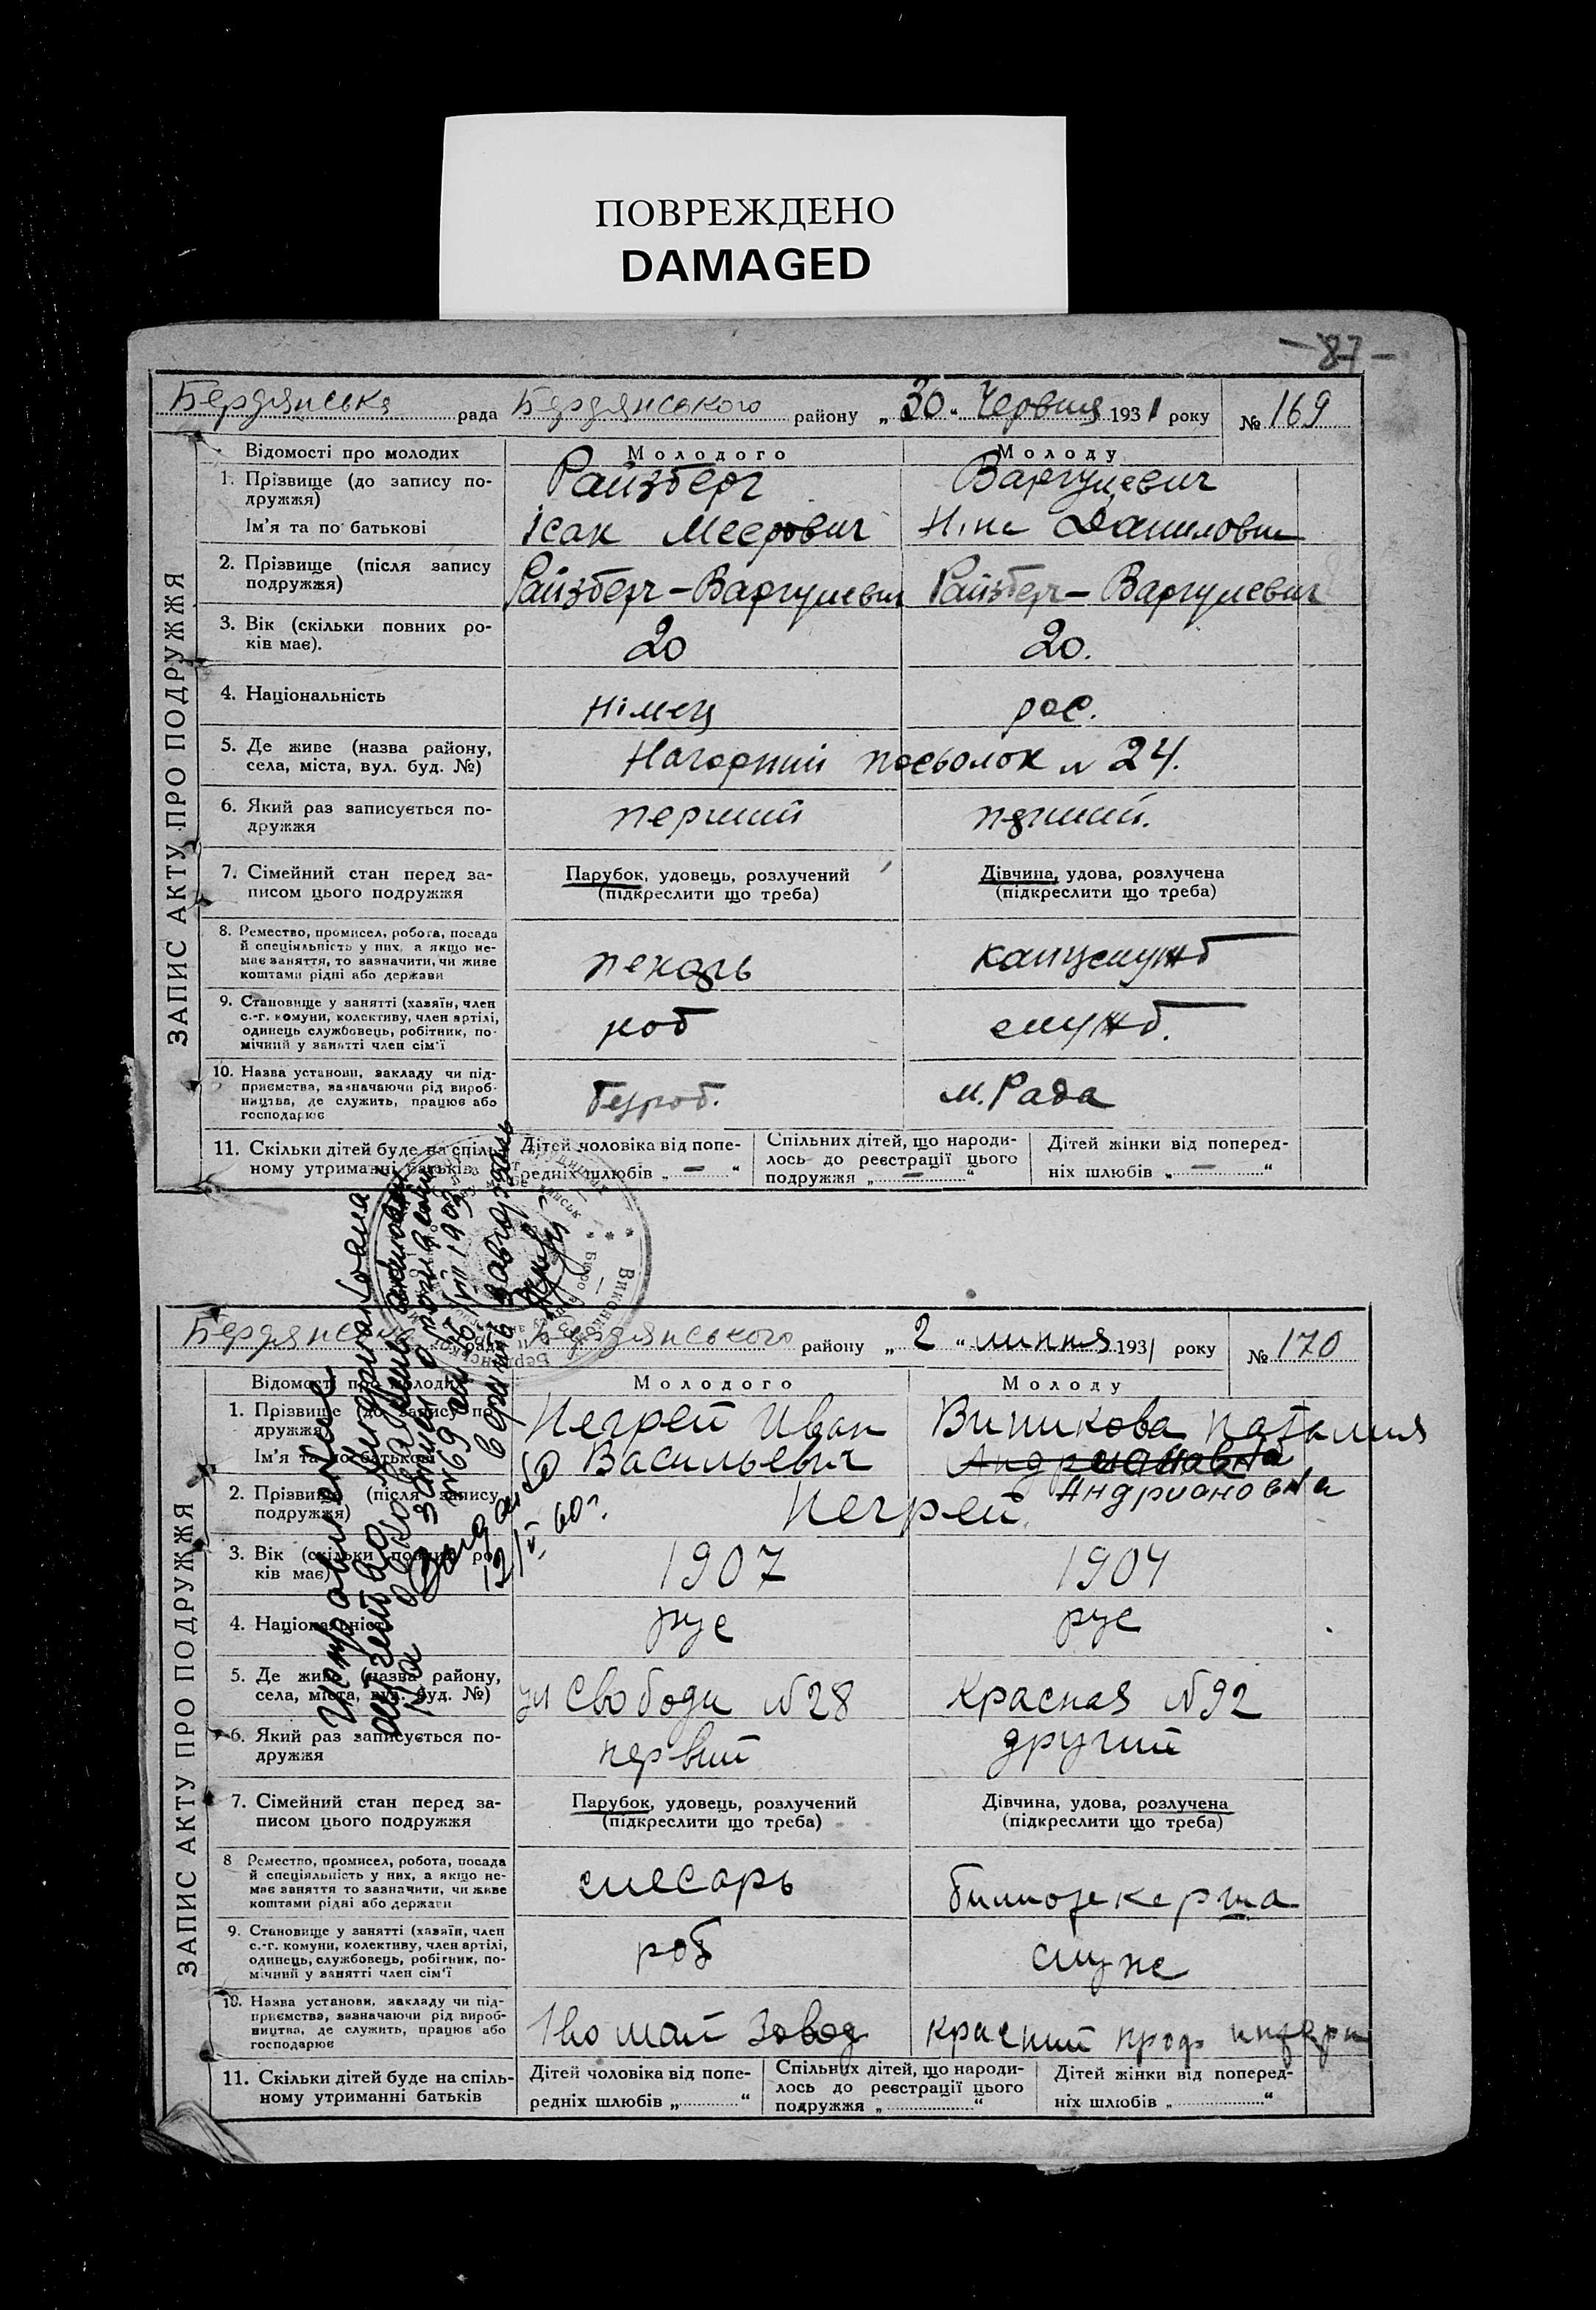 ПОВРЕЖДЕНО
DAMAGED
— 87 —
Бердянська рада Бердянського району „30“ Червня 1931 року № 169
ЗАПИС АКТУ ПРО ПОДРУЖЖЯ
Відомості про молодих Молодого Молоду
1. Прізвище (до запису по-
дружжя) Райзберг Варгулевич
Ім'я та по батькові Ісак Меерович Ніна Даниловн
2. Прізвище (після запису
подружжя) Райзберг-Варгулевич Райзберг-Варгулевич
3. Вік (скільки повних ро-
ків має). 20 20.
4. Національність німец рос.
5. Де живе (назва району,
села, міста, вул. буд. №) Нагорний посьолок № 24.
6. Який раз записується по-
дружжя перший перший.
7. Сімейний стан перед за-
писом цього подружжя
Парубок, удовець, розлучений
(підкреслити що треба)
Дівчина, удова, розлучена
(підкреслити що треба)
8. Ремество, промисел, робота, посада
й спеціяльність у них, а якщо не-
має заняття, то зазначити, чи живе
коштами рідні або держави
пекарь канцслужб
9. Становище у занятті (хазяїн, член
с.-г. комуни, колективу, член артілі,
одинець службовець, робітник, по-
мічний у занятті член сім'ї
роб служб.
10. Назва установи, закладу чи під-
приємства, зазначаючи рід вироб-
ництва, де служить, працює або
господарює
безроб. м. Рада
11. Скільки дітей буде на спіль-
ному утриманні батьків
Дітей чоловіка від попе-
редніх шлюбів „ — “
Спільних дітей, що народи-
лось до реєстрації цього
подружжя „ — “
Дітей жінки від поперед-
ніх шлюбів „ — “
Исправление
12/V 60 г.
Бердянська рада Бердянського району „2“ липня 1931 року № 170
ЗАПИС АКТУ ПРО ПОДРУЖЖЯ
Відомості про молодих Молодого Молоду
1. Прізвище (до запису по-
дружжя) Негрей Иван Виникова Наталия
Ім'я та по батькові Васильевич Андриановна
Андриановна
2. Прізвище (після запису
подружжя) Негрей
3. Вік (скільки повних ро-
ків має) 1907 1904
4. Національність рус рус
5. Де живе (назва району,
села, міста, вул. буд. №) ул Свободи № 28 Красная № 92
6. Який раз записується по-
дружжя первий другий
7. Сімейний стан перед за-
писом цього подружжя
Парубок, удовець, розлучений
(підкреслити що треба)
Дівчина, удова, розлучена
(підкреслити що треба)
8 Ремество, промисел, робота, посада
й спеціяльність у них, а якщо не-
має заняття то зазначити, чи живе
коштами рідні або держави
слесарь
9. Становище у занятті (хазяїн, член
с.-г. комуни, колективу, член артілі,
одинець, службовець, робітник, по-
мічний у занятті член сім'ї
роб служ
10. Назва установи, закладу чи під-
приємства, зазначаючи рід вироб-
ництва, де служить, працює або
господарює
1во май завод красний проф
11. Скільки дітей буде на спіль-
ному утриманні батьків
Дітей чоловіка від попе-
редніх шлюбів „ “
Спільних дітей, що народи-
лось до реєстрації цього
подружжя „ “
Дітей жінки від поперед-
ніх шлюбів „ “